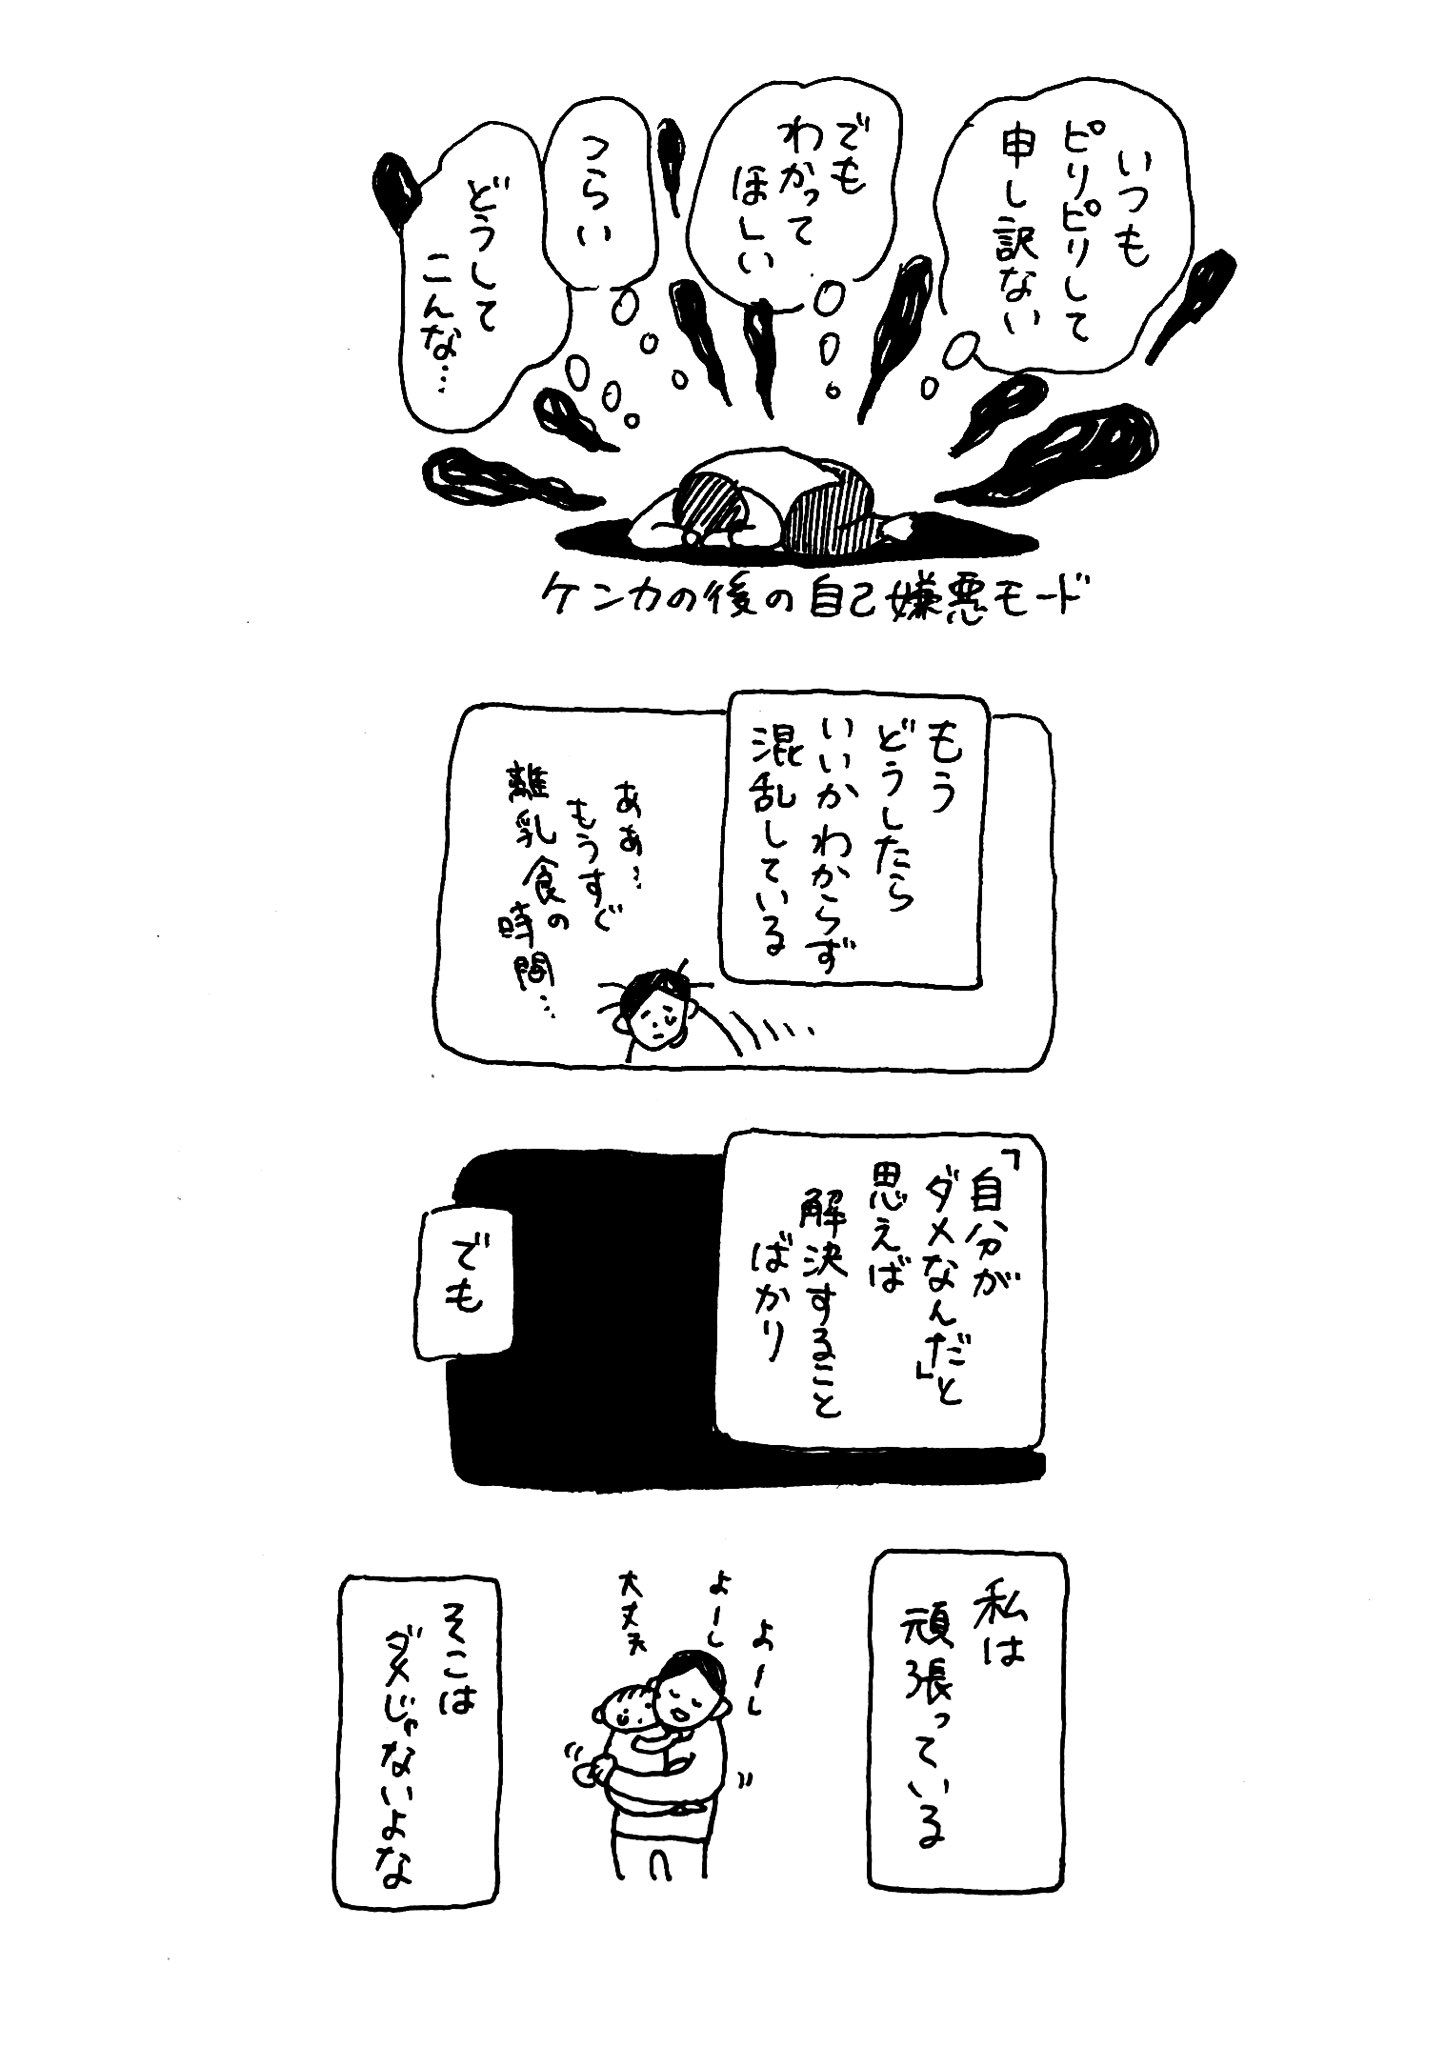 いつも
ピリピリして
申し訳ない
でも
わかって
ほしい
つらい
どうして
こんな…
ケンカの後の自己嫌悪モード
もう
どうしたら
いいかわからず
混乱している
ああ…
もうすぐ
離乳食の
時間…
「自分が
ダメなんだ」と
思えば
解決すること
ばかり
でも
私は
頑張っている
よーし
よーし
大丈夫
そこは
ダメじゃないよな